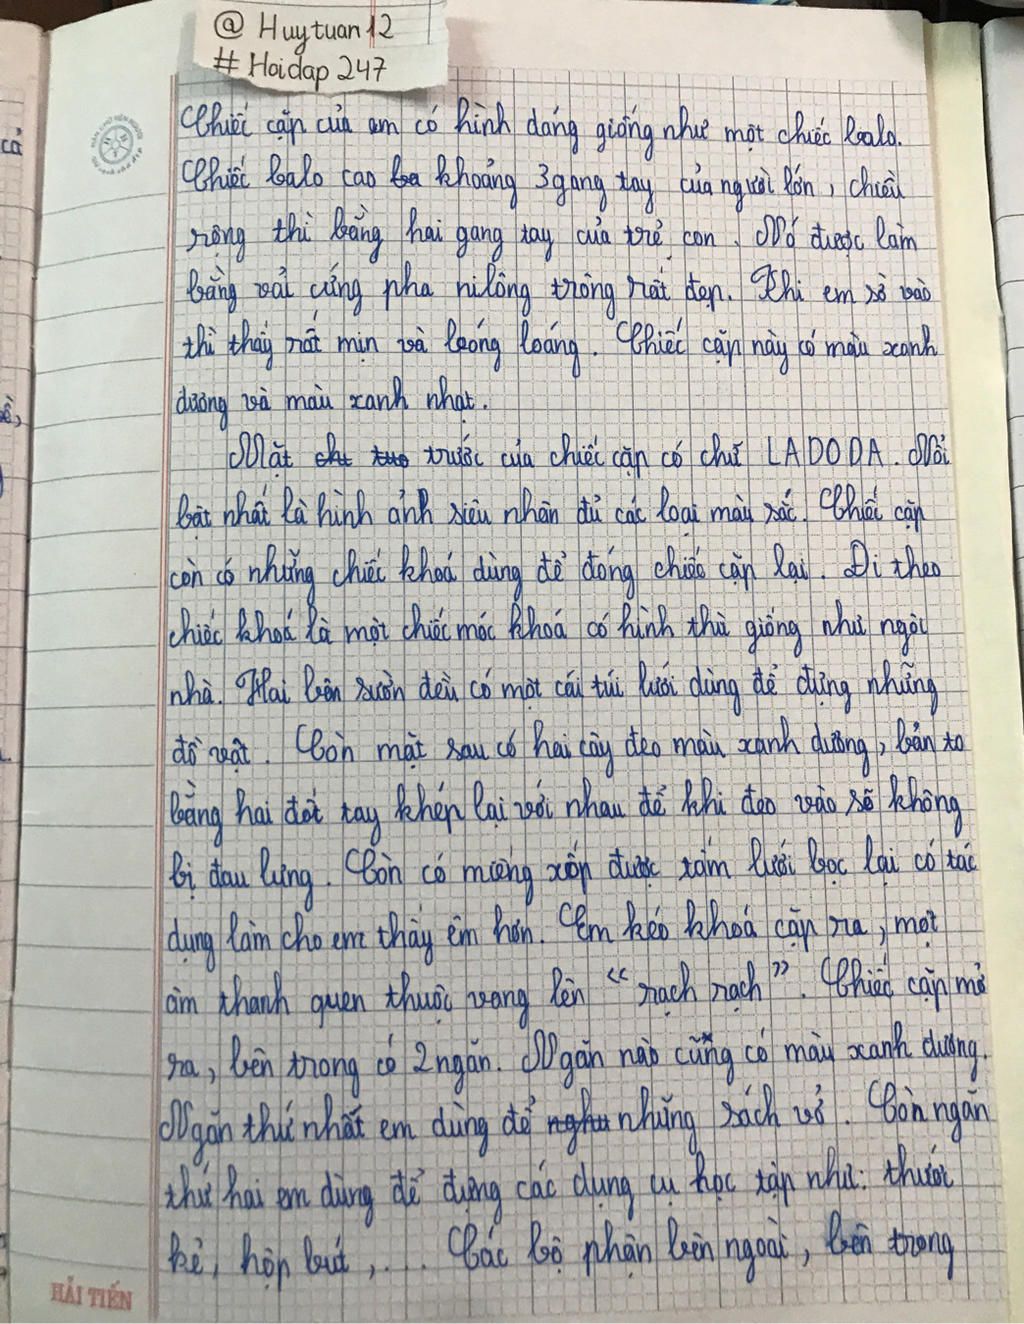 @ Huytuan12
# Hoidap 247
Chiếc cặp của em có hình dáng giống như một chiếc balo.
Chiếc balo cao khoảng 3 gang tay của người lớn, chiều
rộng thì bằng hai gang tay của trẻ con. Nó được làm
bằng vải cứng pha nilông trông rất đẹp. Khi em sờ vào
thì thấy rất mịn và loóng loáng. Chiếc cặp này có màu xanh
dương và màu xanh nhạt.
Mặt trước của chiếc cặp có chữ LADODA. Nổi
bật nhất là hình ảnh siêu nhân đủ các loại màu sắc. Chiếc cặp
còn có những chiếc khoá dùng để đóng chiếc cặp lại. Đi theo
chiếc khoá là một chiếc móc khoá có hình thù giống như ngôi
nhà. Hai bên sườn đều có một cái túi lưới dùng để đựng những
đồ vật. Còn mặt sau có hai cây đeo màu xanh dương, bản to
bằng hai đốt tay khép lại với nhau để khi đeo vào sẽ không
bị đau lưng. Còn có miếng xốp được tấm lưới bọc lại có tác
dụng làm cho em thấy êm hơn. Em kéo khoá cặp ra, một
âm thanh quen thuộc vang lên “rạch rạch”. Chiếc cặp mở
ra, bên trong có 2 ngăn. Ngăn nào cũng có màu xanh dương.
Ngăn thứ nhất em dùng để những sách vở. Còn ngăn
thứ hai em dùng để đựng các dụng cụ học tập như: thước
kẻ, hộp bút,.... Các bộ phận bên ngoài, bên trong
HẢI TIẾN